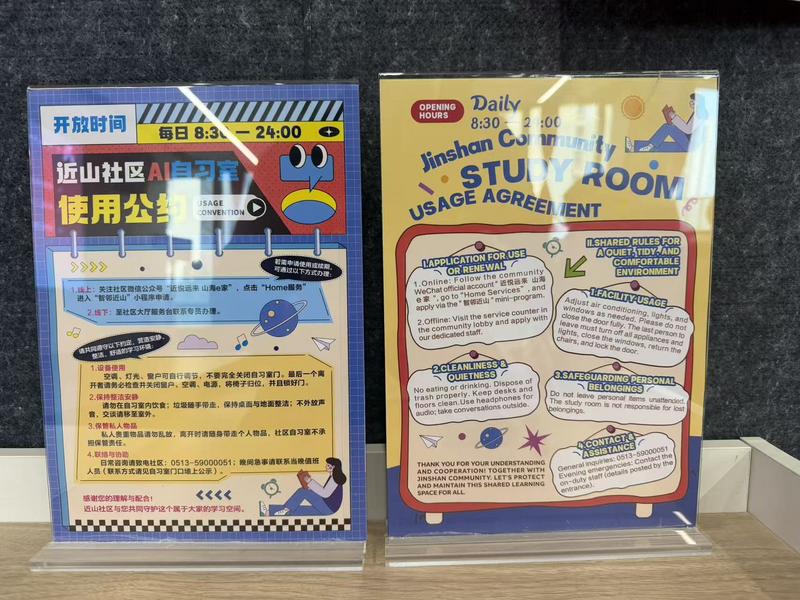 开放时间
每日 8:30 — 24:00
近山社区AI自习室
使用公约
USAGE
CONVENTION
若需申请使用或续期,
可通过以下方式办理:
1.线上: 关注社区微信公众号 "近悦远来 山海e家" , 点击 "Home服务"
进入 "智邻近山" 小程序申请。
2.线下: 至社区大厅服务台联系专员办理。
请共同遵守以下约定, 营造安静、
整洁、舒适的学习环境:
1.设备使用
空调、灯光、窗户可自行调节, 不要完全关闭自习室门。最后一个离
开者请务必检查并关闭窗户、空调、电源, 将椅子归位, 并且锁好门。
2.保持整洁安静
请勿在自习室内饮食; 垃圾随手带走, 保持桌面与地面整洁; 不外放声
音, 交谈请移至室外。
3.保管私人物品
私人贵重物品请勿乱放, 离开时请随身带走个人物品, 社区自习室不承
担保管责任。
4.联络与协助
日常咨询请致电社区: 0513-59000051; 晚间急事请联系当晚值班
人员 (联系方式请见自习室门口墙上公示) 。
感谢您的理解与配合!
近山社区与您共同守护这个属于大家的学习空间。
OPENING
HOURS
Daily
8:30 — 24:00
Jinshan Community
STUDY ROOM
USAGE AGREEMENT
1.APPLICATION FOR USE
OR RENEWAL
1.Online: Follow the community
WeChat official account" 近悦远来 山海
e家 ", go to "Home Services" , and
apply via the " 智邻近山" mini-program.
2.Offline: Visit the service counter in
the community lobby and apply with
our dedicated staff.
II.SHARED RULES FOR
A QUIET, TIDY, AND
COMFORTABLE
ENVIRONMENT
1.FACILITY USAGE
Adjust air conditioning, lights, and
windows as needed. Please do not
close the door fully. The last person to
leave must turn off all appliances and
lights, close the windows, return the
chairs, and lock the door.
2.CLEANLINESS &
QUIETNESS
No eating or drinking. Dispose of
trash properly. Keep desks and
floors clean. Use headphones for
audio; take conversations outside.
3.SAFEGUARDING PERSONAL
BELONGINGS
Do not leave personal items unattended.
The study room is not responsible for lost
belongings.
4.CONTACT &
ASSISTANCE
General inquiries: 0513-59000051
Evening emergencies: Contact the
on-duty staff (details posted by the
entrance).
THANK YOU FOR YOUR UNDERSTANDING
AND COOPERATION! TOGETHER WITH
JINSHAN COMMUNITY, LET'S PROTECT
AND MAINTAIN THIS SHARED LEARNING
SPACE FOR ALL.